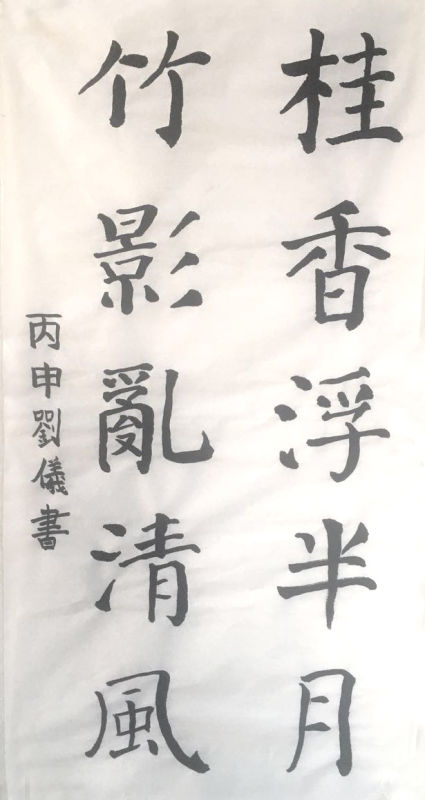 桂香浮半月
竹影亂清風
丙申劉儀書